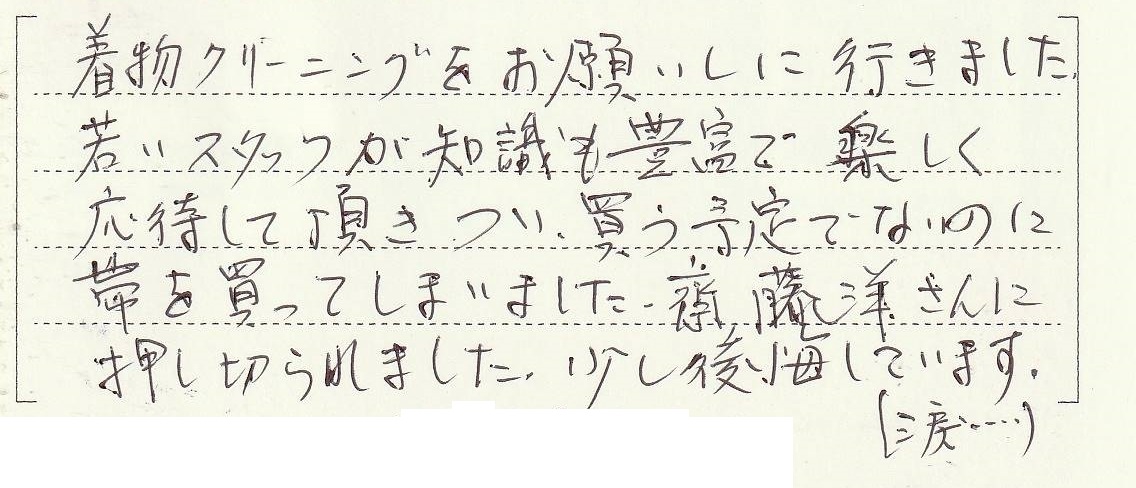 着物クリーニングをお願いしに行きました.
若いスタッフが知識も豊富で楽しく
応待して頂きつい、買う予定でないのに
帯を買ってしまいました. 齋藤洋さんに
押し切られました. 少し後悔しています.
(涙……)